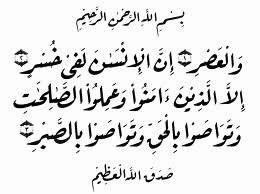 بِسْمِ اللَّهِ الرَّحْمَٰنِ الرَّحِيمِ
وَالْعَصْرِ ۝١ إِنَّ الْإِنْسَٰنَ لَفِي خُسْرٍ ۝٢
إِلَّا الَّذِينَ ءَامَنُوا وَعَمِلُوا الصَّٰلِحَٰتِ
وَتَوَاصَوْا بِالْحَقِّ وَتَوَاصَوْا بِالصَّبْرِ ۝٣
صَدَقَ اللَّهُ الْعَظِيمُ